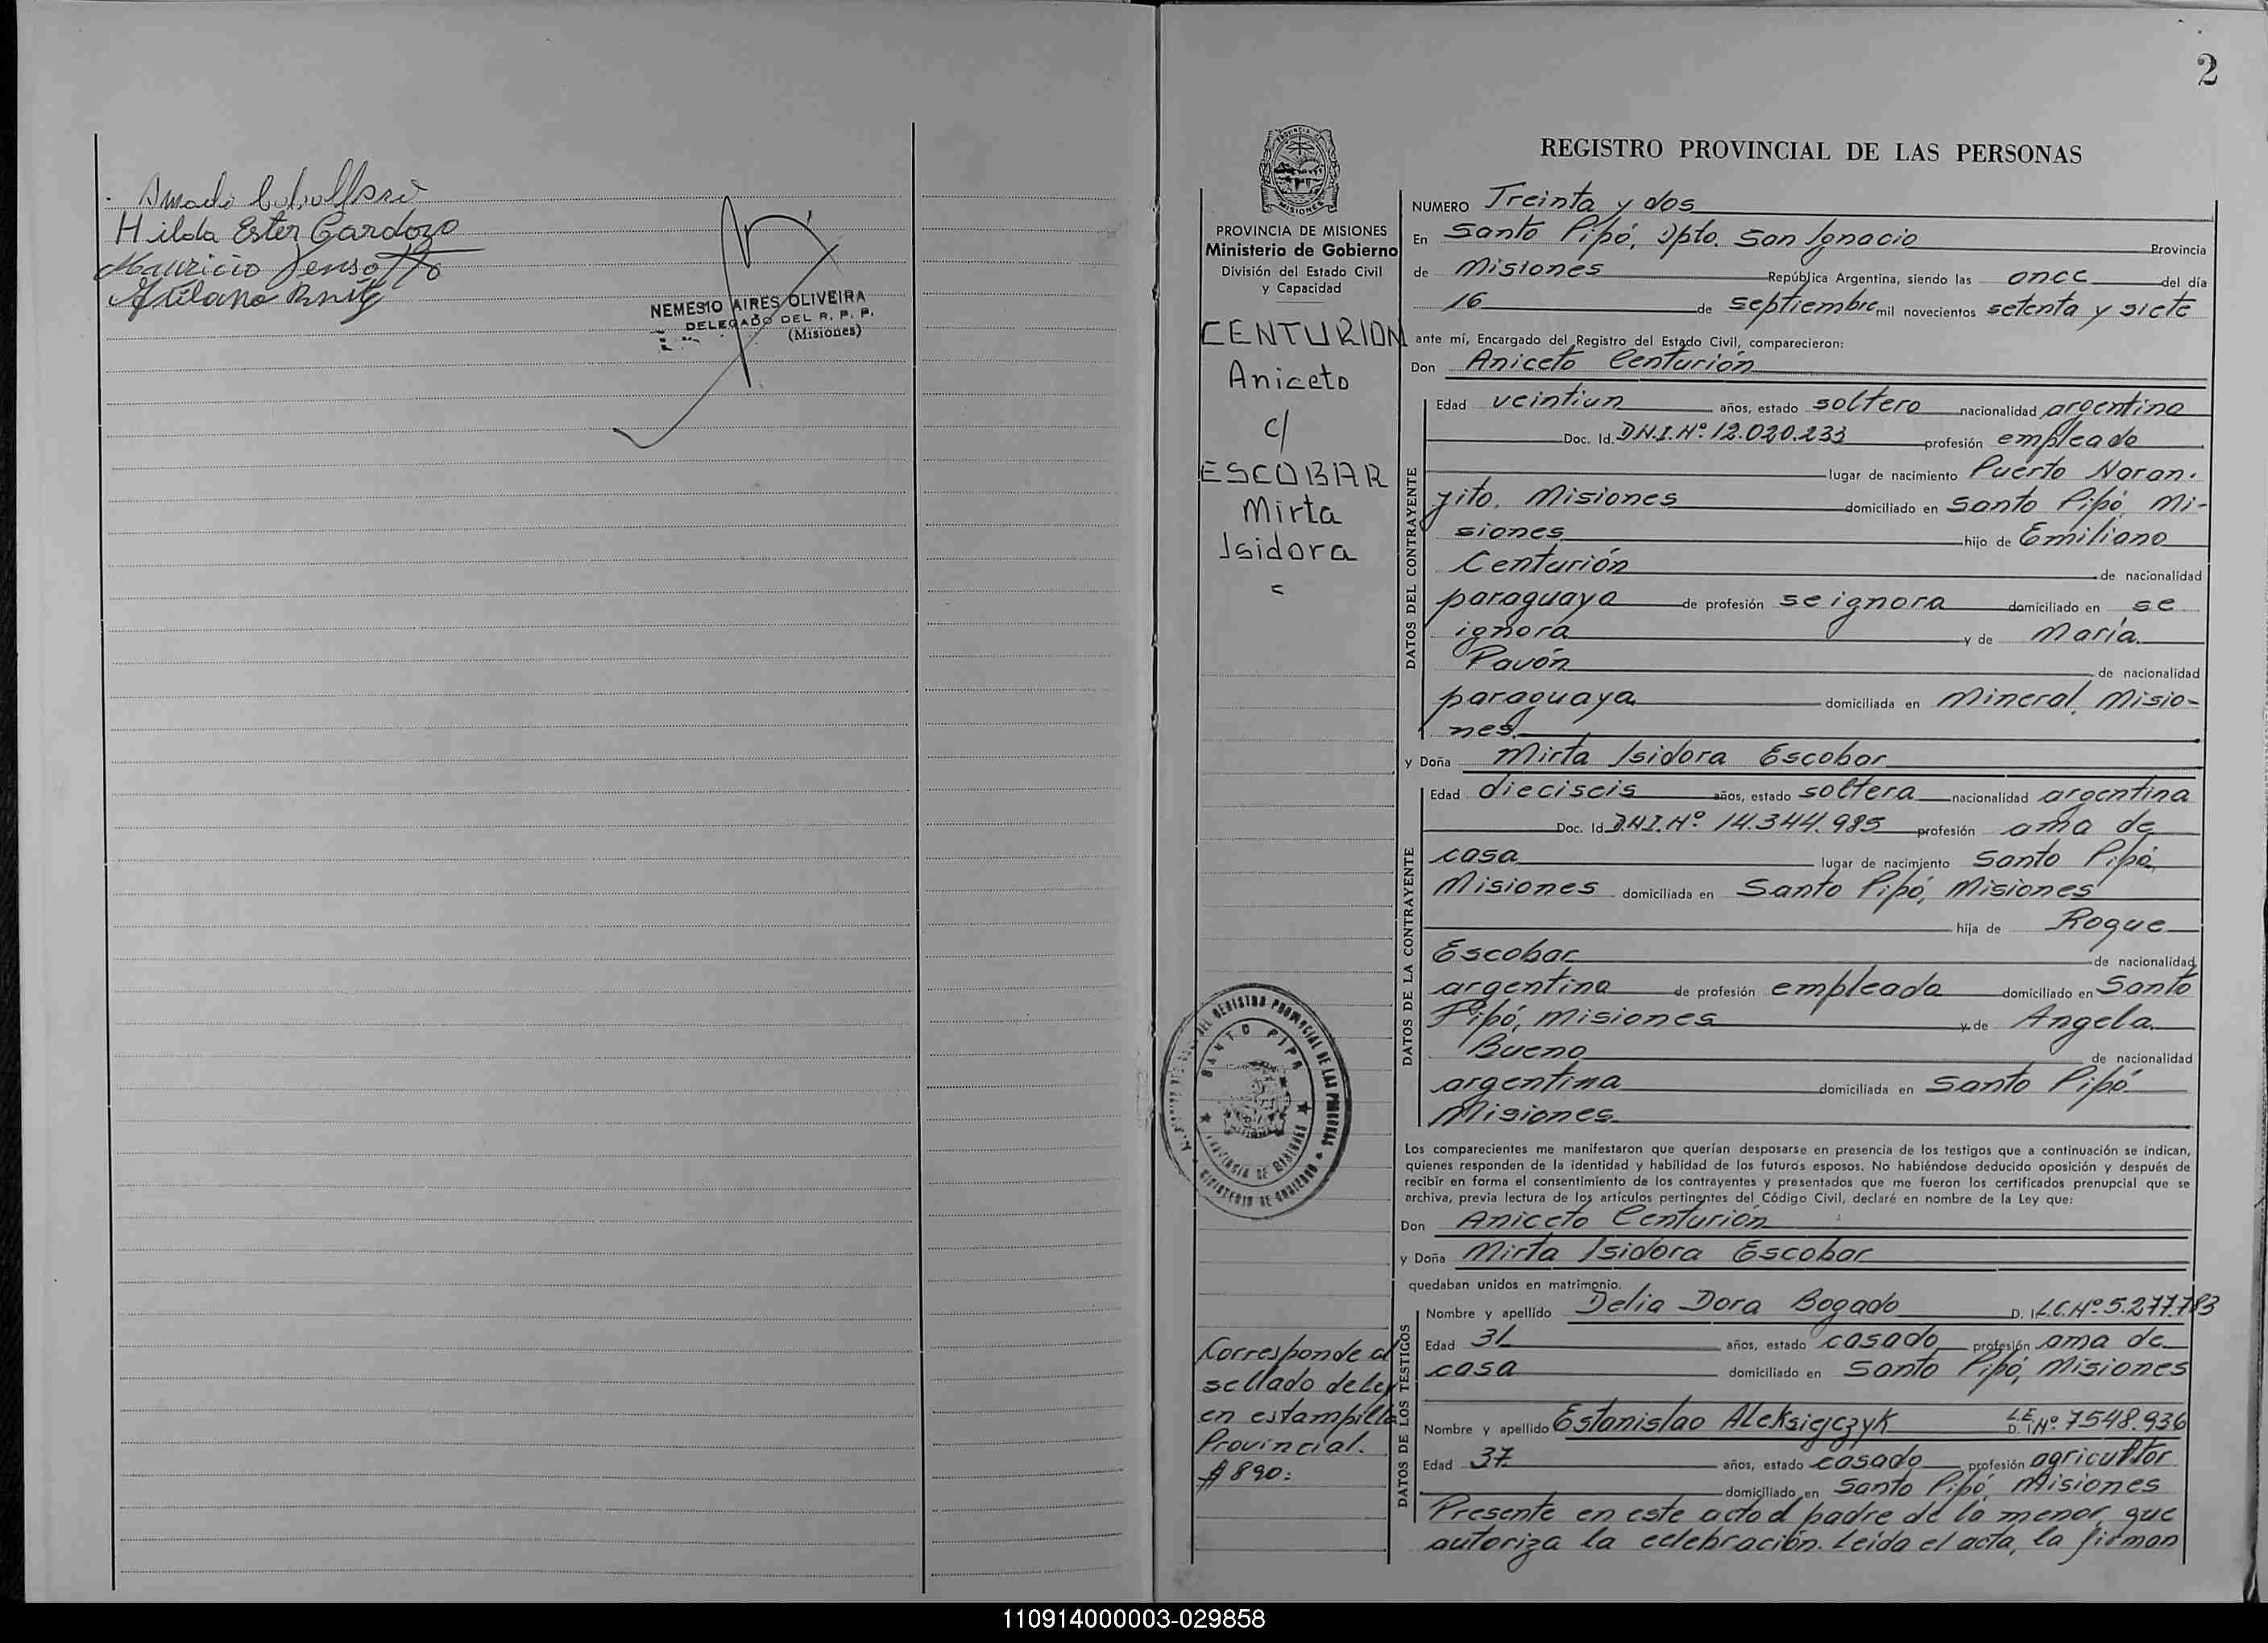 Hilda Ester Cardozo
Mauricio
NEMESIO AIRES OLIVEIRA
DELEGADO DEL R. P. P.
(Misiones)
2
PROVINCIA DE MISIONES
Ministerio de Gobierno
División del Estado Civil
y Capacidad
CENTURION
Aniceto
c/
ESCOBAR
Mirta
Isidora
=
SANTO PIPO
PROVINCIA DE MISIONES
MINISTERIO DE GOBIERNO
Corresponde al
sellado de Ley
en estampilla
Provincial.
$ 890=
REGISTRO PROVINCIAL DE LAS PERSONAS
NUMERO Treinta y dos
En Santo Pipó, Dpto. San Ignacio Provincia
de Misiones República Argentina, siendo las once del día
16 de septiembre mil novecientos setenta y siete
ante mí, Encargado del Registro del Estado Civil, comparecieron:
Don Aniceto Centurión
DATOS DEL CONTRAYENTE
Edad veintiun años, estado soltero nacionalidad argentina
Doc. Id. D.N.I. Nº 12.020.233 profesión empleado
lugar de nacimiento Puerto Naran-
jito, Misiones domiciliado en Santo Pipó, Mi-
siones hijo de Emiliano
Centurión de nacionalidad
paraguaya de profesión se ignora domiciliado en se
ignora y de María
Pavón de nacionalidad
paraguaya domiciliada en Mineral, Misio-
nes.
y Doña Mirta Isidora Escobar
DATOS DE LA CONTRAYENTE
Edad dieciseis años, estado soltera nacionalidad argentina
Doc. Id. D.N.I. Nº 14.344.985 profesión ama de
casa lugar de nacimiento Santo Pipó,
Misiones domiciliada en Santo Pipó, Misiones
hija de Roque
Escobar de nacionalidad
argentina de profesión empleada domiciliado en Santo
Pipó, Misiones y de Angela
Bueno de nacionalidad
argentina domiciliada en Santo Pipó
Misiones.
Los comparecientes me manifestaron que querían desposarse en presencia de los testigos que a continuación se indican,
quienes responden de la identidad y habilidad de los futuros esposos. No habiéndose deducido oposición y después de
recibir en forma el consentimiento de los contrayentes y presentados que me fueron los certificados prenupcial que se
archiva, previa lectura de los artículos pertinentes del Código Civil, declaré en nombre de la Ley que:
Don Aniceto Centurión
y Doña Mirta Isidora Escobar
quedaban unidos en matrimonio.
DATOS DE LOS TESTIGOS
Nombre y apellido Delia Dora Bogado D. I. L.C. Nº 5.277.783
Edad 31 años, estado casado profesión ama de
casa domiciliado en Santo Pipó, Misiones
Nombre y apellido Estanislao Aleksiejczyk D. I. L.E. Nº 7548.936
Edad 37 años, estado casado profesión agricultor
domiciliado en Santo Pipó, Misiones
Presente en este acto el padre de la menor, que
autoriza la celebración. Leída el acta, la firman
110914000003-029858